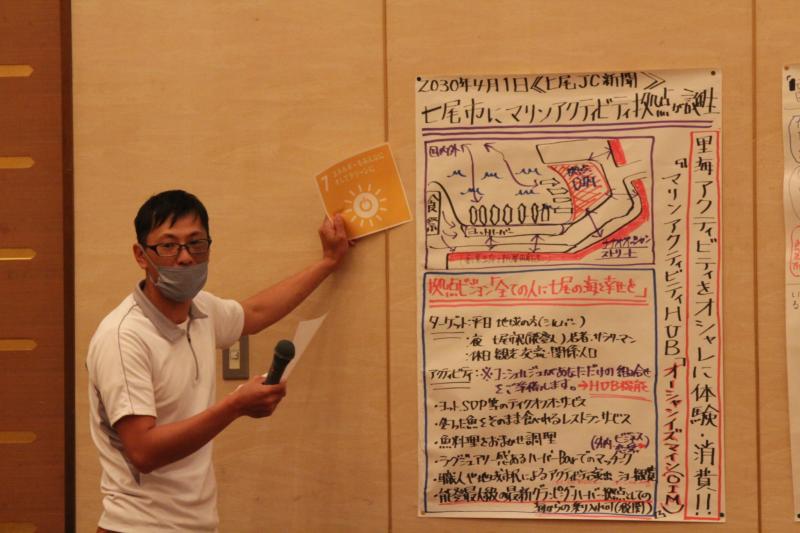 7 エネルギーをみんなに
そしてクリーンに
2030年4月1日《七尾JC新聞》
七尾市にマリンアクティビティ拠点が誕生
里海アクティビティをオシャレに体験・消費!!
『マリンアクティビティHUB』オーシャンイズマイン(OIM)
国内外
拠点
OIM
食祭
ヨットハーバー
ストリート
拠点ビジョン「全ての人に七尾の海と幸せを」
ターゲット:平日 地域の方(シルバー)
:夜 七尾市民(能登人) 若者・サラリーマン
:休日 観光・交流・関係人口
アクティビティ:※コンシェルジュがあなただけの組合せを
ご準備します。→HUB機能
・ヨット、SUP等のテイクオフサービス
・釣った魚をそのまま食べれるレストランサービス
・魚料理をおまかせ調理
・ラグジュアリー感あるハーバーBarでのマッチング
(外内ビジネス
・職人や地域市民によるアクティビティ演出 ショー観覧
・能登最大級の最新グランピングハーバー拠点としての
海からの乗り入れ可(税関)